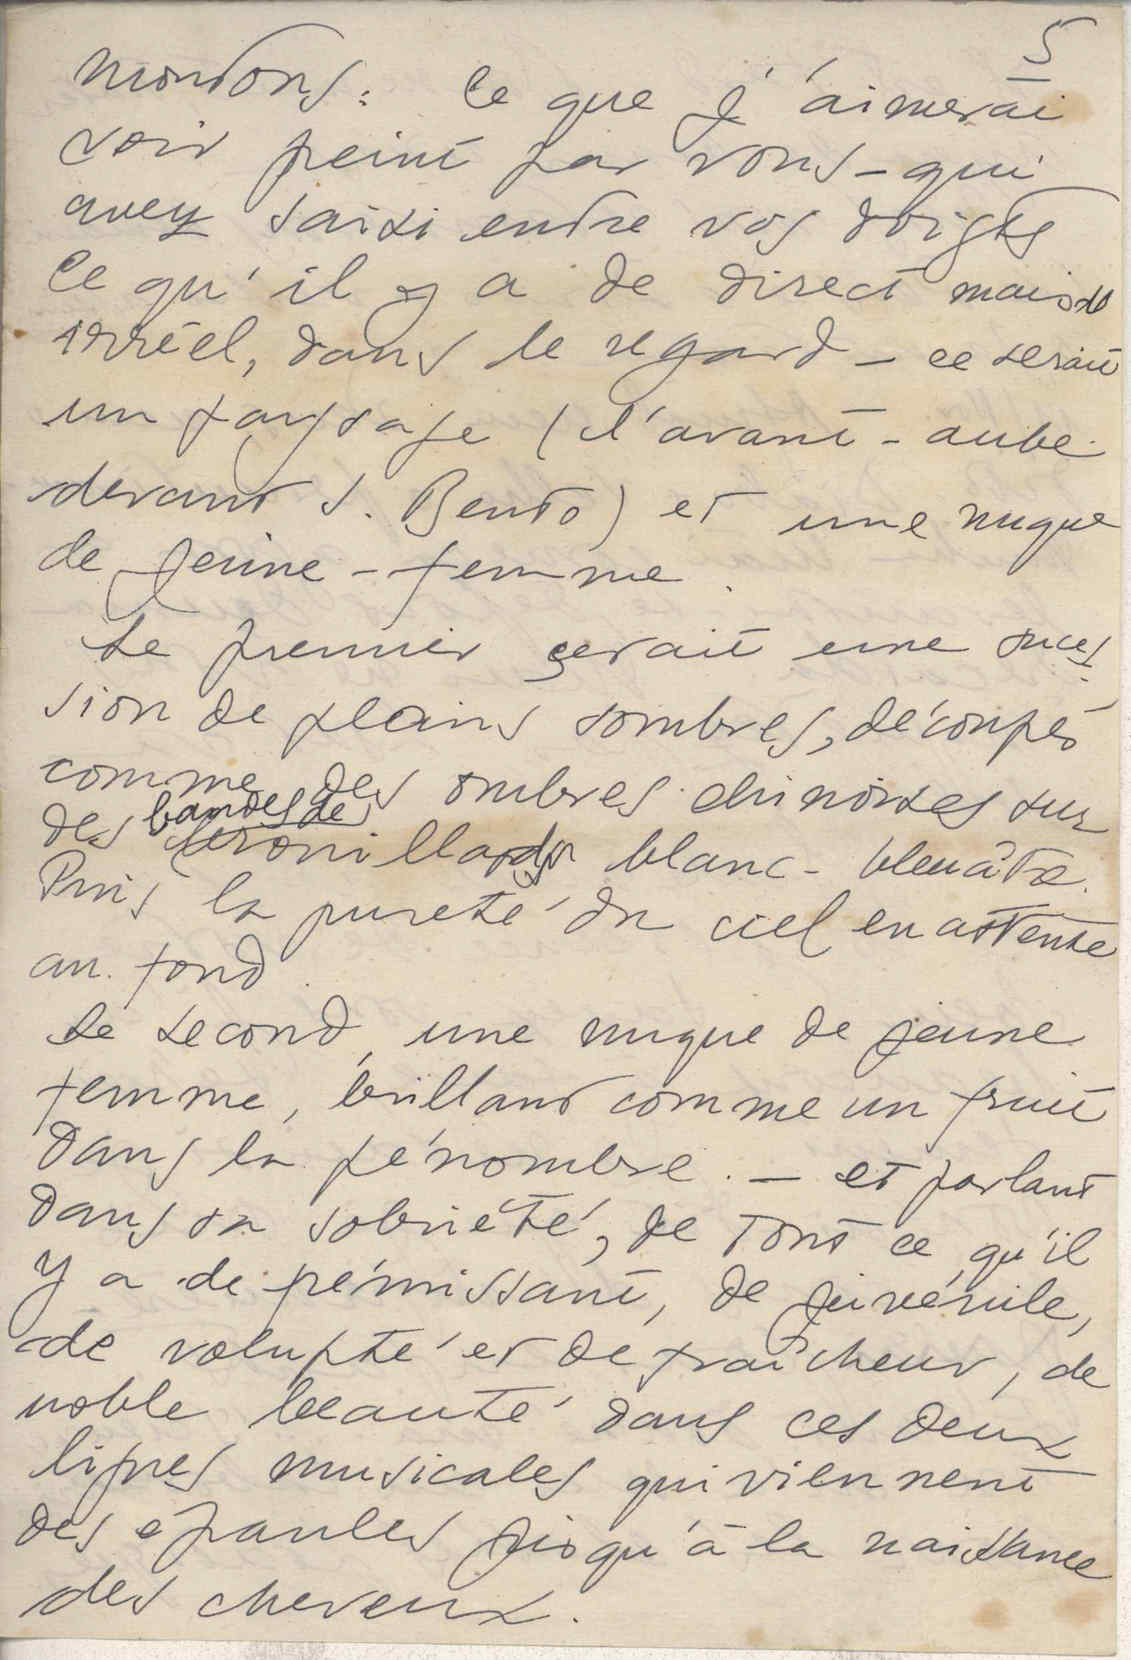 5
moutons : Ce que j'aimerai
voir peint par vous – qui
avez saisi entre vos doigts
ce qu'il y a de direct mais de
irréel, dans le regard – ce serait
un paysage (l'avant-aube
devant S. Bento) et une nuque
de jeune-femme.
Le premier serait une succes-
sion de plans sombres, découpés
comme des ombres chinoises sur
des bandes de brouillards blanc-bleuâtre.
Puis la pureté du ciel en attente
au fond.
Le second, une nuque de jeune
femme, brillant comme un fruit
dans la pénombre. – et parlant
dans sa sobriété, de tout ce qu'il
y a de frémissant, de juvénile,
de volupté et de fraîcheur, de
noble beauté dans ces deux
lignes musicales qui viennent
des épaules jusqu'à la naissance
des cheveux.